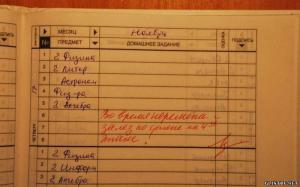 МЕСЯЦ ноябрь
№ ПРЕДМЕТ ДОМАШНЕЕ ЗАДАНИЕ ОЦЕНКА ПОДПИСЬ
1 2 Физика
2 2 Литер
3 Астроном
4 Физ-ра
5 2 Алгебра
6 Во время перемены
7 залез по стене на 4ый
8 этаж!
ЧЕТВЕРГ
1 2 Физика
2 2 Информ
3 2 Алгебра